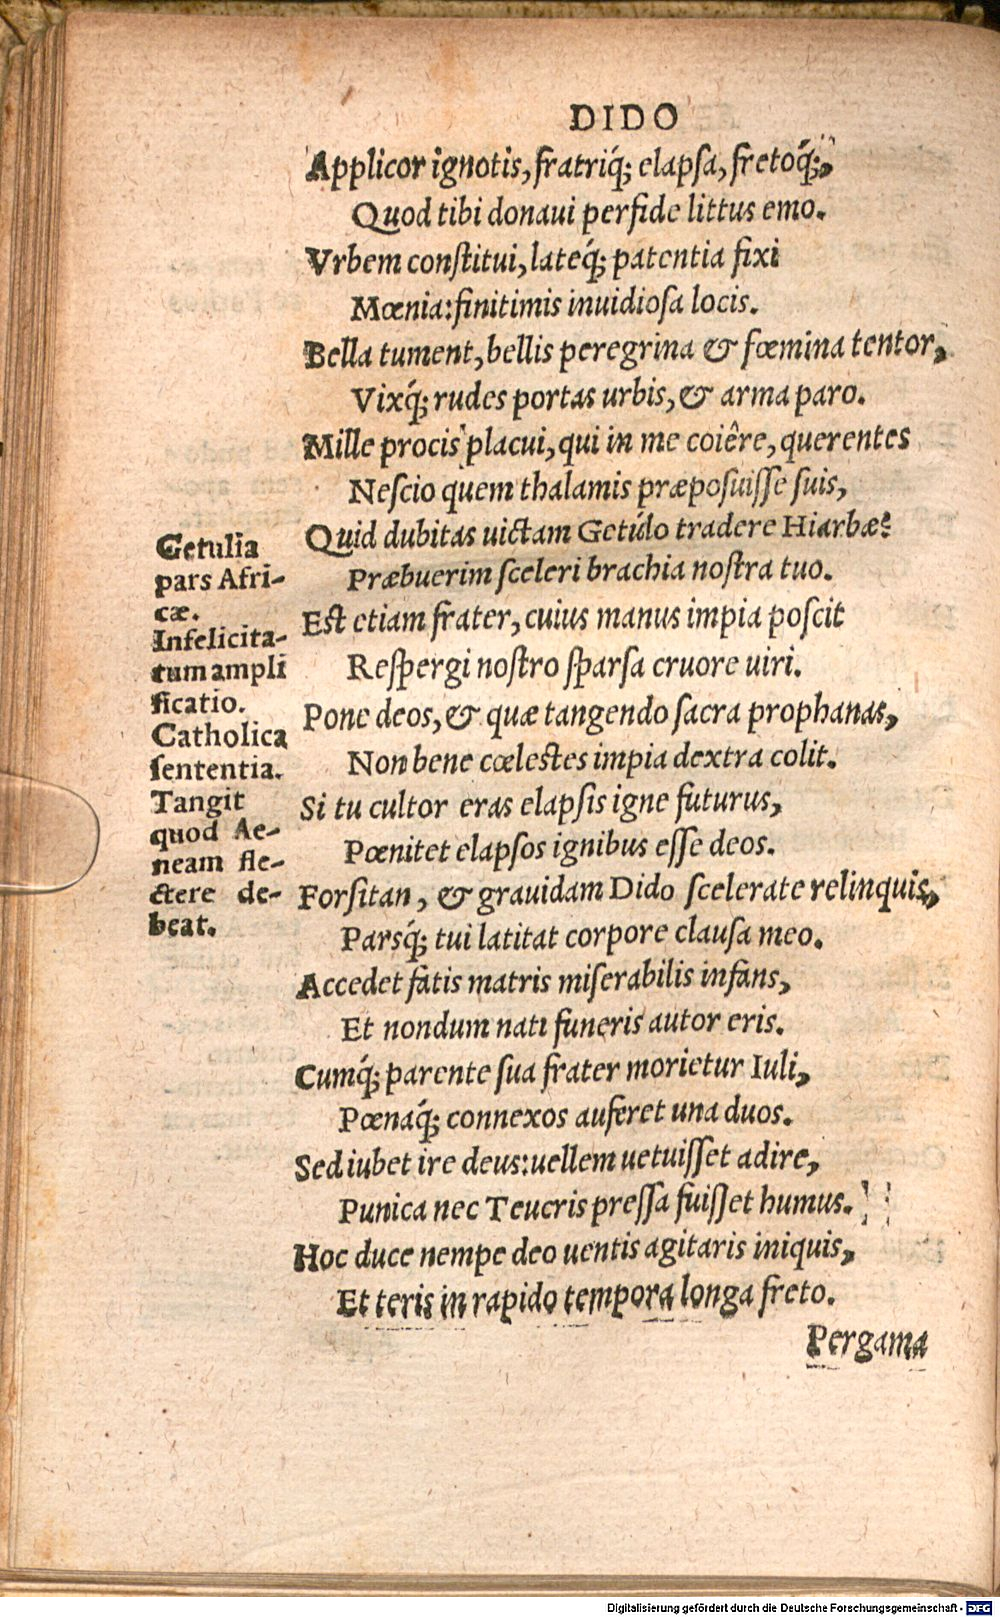 DIDO
Applicor ignotis, fratriq́; elapsa, fretoq́;,
Quod tibi donaui perfide littus emo.
Vrbem constitui, lateq́; patentia fixi
Mœnia: finitimis inuidiosa locis.
Bella tument, bellis peregrina & fœmina tentor,
Vixq́; rudes portas urbis, & arma paro.
Mille procis placui, qui in me coiêre, querentes
Nescio quem thalamis præposuisse suis,
Quid dubitas uictam Getúlo tradere Hiarbæ?
Præbuerim sceleri brachia nostra tuo.
Est etiam frater, cuius manus impia poscit
Respergi nostro sparsa cruore uiri.
Pone deos, & quæ tangendo sacra prophanas,
Non bene cœlestes impia dextra colit.
Si tu cultor eras elapsis igne futurus,
Pœnitet elapsos ignibus esse deos.
Forsitan, & grauidam Dido scelerate relinquis,
Parsq́; tui latitat corpore clausa meo.
Accedet fatis matris miserabilis infans,
Et nondum nati funeris autor eris.
Cumq́; parente sua frater morietur Iuli,
Pœnaq́; connexos auferet una duos.
Sed iubet ire deus: uellem uetuisset adire,
Punica nec Teucris pressa fuisset humus.
Hoc duce nempe deo uentis agitaris iniquis,
Et teris in rapido tempora longa freto.
Pergama
Getulia
pars Afri-
cæ.
Infelicita-
tum ampli
ficatio.
Catholica
sententia.
Tangit
quod Ae-
neam fle-
ctere de-
beat.
Digitalisierung gefördert durch die Deutsche Forschungsgemeinschaft - DFG